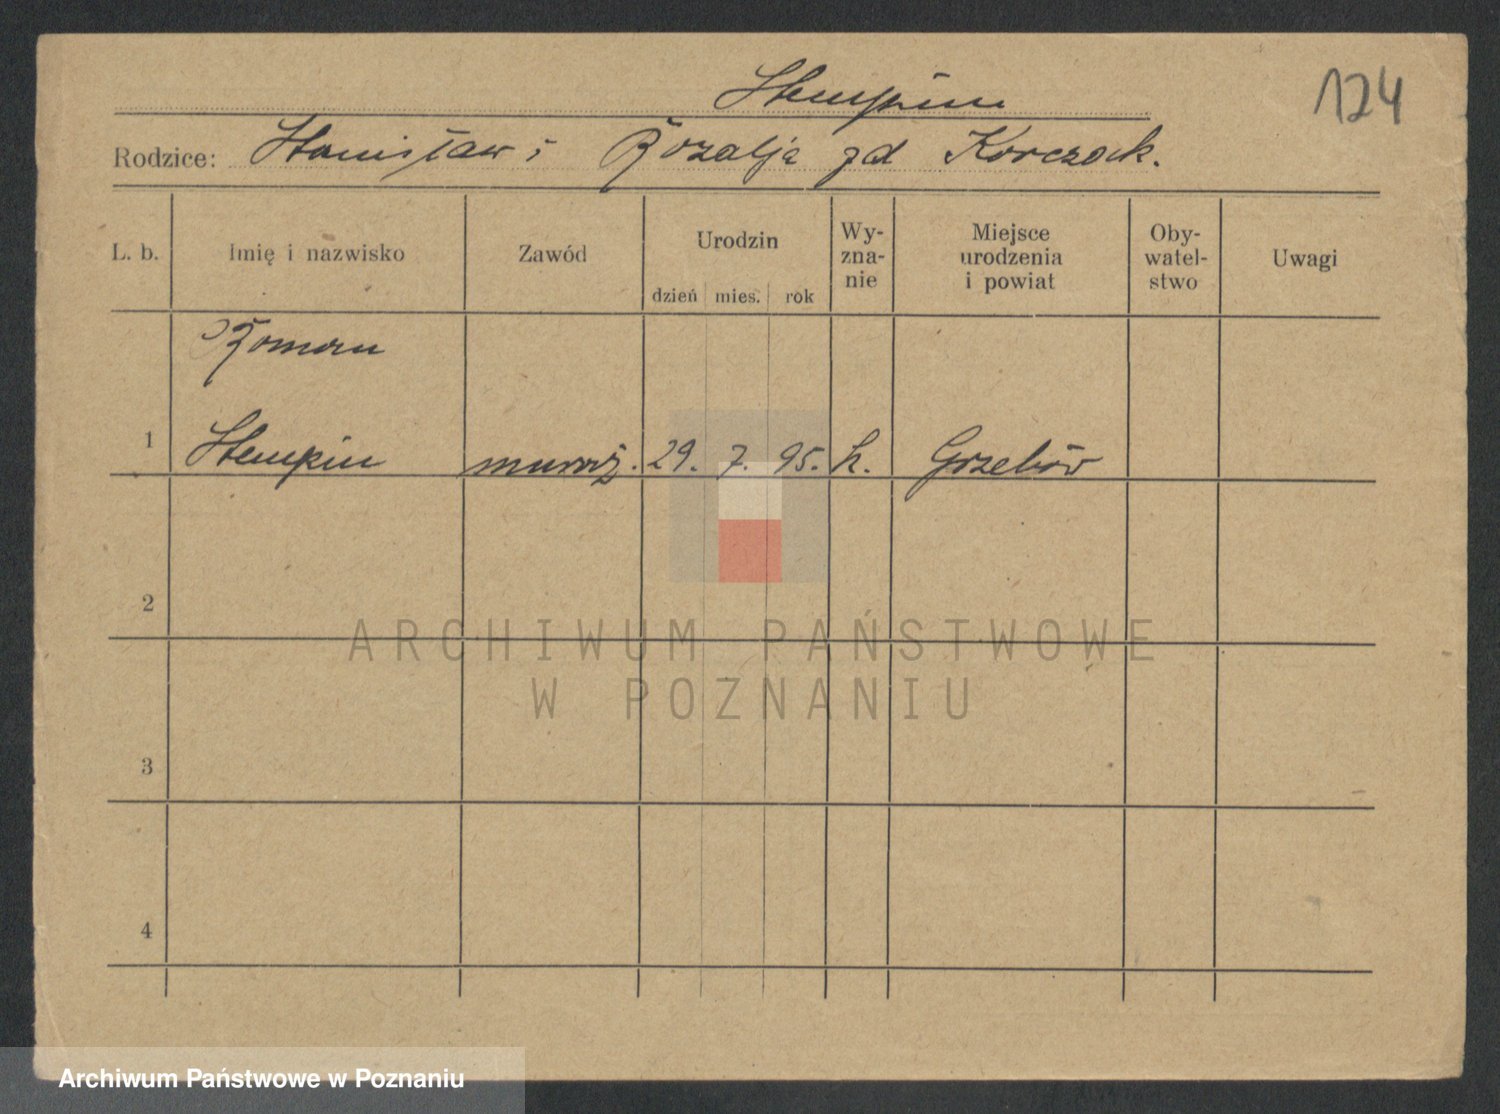 Stempin
124
Rodzice: Stanisław i Rozalja zd Korczak.
L. b. Imię i nazwisko Zawód Urodzin dzień mies. rok Wy-zna-nie Miejsce urodzenia i powiat Oby-watel-stwo Uwagi
Roman
1 Stempin muraż. 29. 7. 95. k. Grzebów
2
3
4
ARCHIWUM PAŃSTWOWE
W POZNANIU
Archiwum Państwowe w Poznaniu